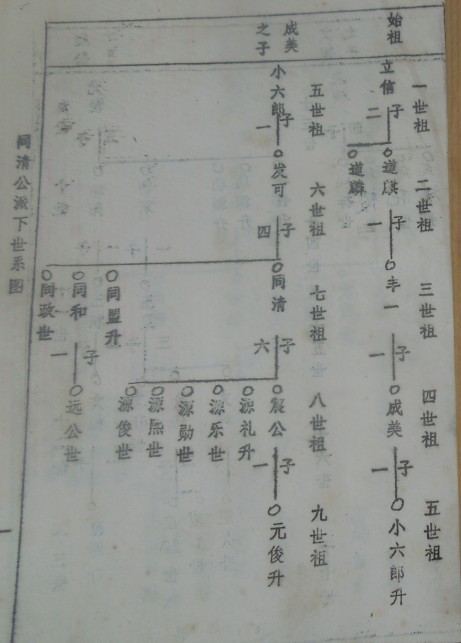 始祖
一世祖
立信
二子
道麒
道麟
二世祖
一子
三世祖
丰一
一子
四世祖
成美
一子
五世祖
小六郎升
成美之子
五世祖
小六郎
一子
六世祖
发可
四子
七世祖
同清
同盟升
同和
同政世
一子
远公世
六子
八世祖
宸公
源礼升
源乐世
源勋世
源熙世
源俊世
一子
九世祖
元俊升
同清公派下世系图